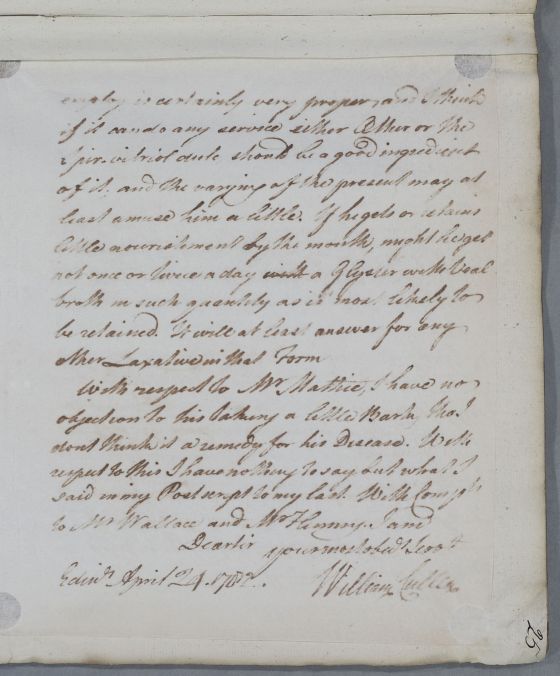 employ is certainly very proper, and I think
if it can do any service either Æther or the
Spir. vitriol. dulc. should be a good ingredient
of it, and the varying of the present may at
least amuse him a little. If he gets or retains
little nourishment by the mouth, might he get
not once or twice a day a Glyster with Veal
broth in such quantity as is most likely to
be retained. It will at least answer for any
other Laxative in that Form
With respect to Mr Mattice, I have no
objection to his taking a little Bark, tho' I
dont think it a remedy for his Disease. With
respect to this I have nothing to say but what I
said in my Postscript to my last. With Compts
to Mr Wallace and Mr I am
Dear Sir your most obedt Servt
Edinr April 24. 1782. William Cullen
95